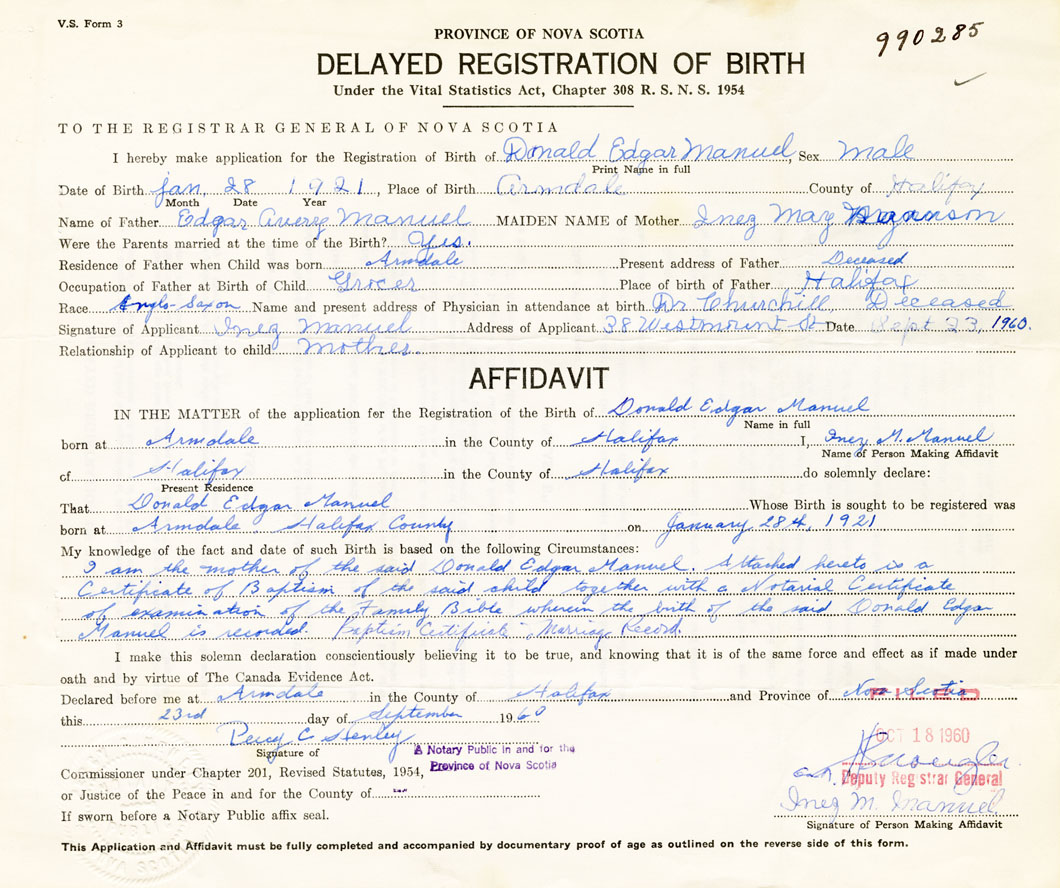 V.S. Form 3
990285
PROVINCE OF NOVA SCOTIA
DELAYED REGISTRATION OF BIRTH
Under the Vital Statistics Act, Chapter 308 R. S. N. S. 1954
TO THE REGISTRAR GENERAL OF NOVA SCOTIA
I hereby make application for the Registration of Birth of Donald Edgar Manuel, Sex male
Print Name in full
Date of Birth Jan, 28 1921, Place of Birth Armdale County of Halifax
Month Date Year
Name of Father Edgar Avery Manuel MAIDEN NAME of Mother Inez May
Were the Parents married at the time of the Birth? Yes.
Residence of Father when Child was born Armdale Present address of Father Deceased
Occupation of Father at Birth of Child Grocer Place of birth of Father Halifax
Race Anglo-Saxon Name and present address of Physician in attendance at birth Dr Churchill, Deceased
Signature of Applicant Inez Manuel Address of Applicant 38 Westmount St Date Sept 23, 1960.
Relationship of Applicant to child Mother.
AFFIDAVIT
IN THE MATTER of the application for the Registration of the Birth of Donald Edgar Manuel
Name in full
born at Armdale in the County of Halifax I, Inez M. Manuel
Name of Person Making Affidavit
of Halifax in the County of Halifax do solemnly declare:
Present Residence
That Donald Edgar Manuel Whose Birth is sought to be registered was
born at Armdale Halifax County on January 28th, 1921
My knowledge of the fact and date of such Birth is based on the following Circumstances:
I am the mother of the said Donald Edgar Manuel. Attached hereto is a
Certificate of Baptism of the said child together with a Notarial Certificate
of examination of the Family Bible wherein the birth of the said Donald Edgar
Manuel is recorded. Baptism Certificate Marriage Record.
I make this solemn declaration conscientiously believing it to be true, and knowing that it is of the same force and effect as if made under
oath and by virtue of The Canada Evidence Act.
Declared before me at Armdale in the County of Halifax and Province of Nova Scotia
FILED
this 23rd day of September 1960
OCT 18 1960
Percy C. Henley
Signature of
A Notary Public in and for the
Province of Nova Scotia
Commissioner under Chapter 201, Revised Statutes, 1954,
Deputy Registrar General
or Justice of the Peace in and for the County of
Inez M. Manuel
If sworn before a Notary Public affix seal.
Signature of Person Making Affidavit
This Application and Affidavit must be fully completed and accompanied by documentary proof of age as outlined on the reverse side of this form.